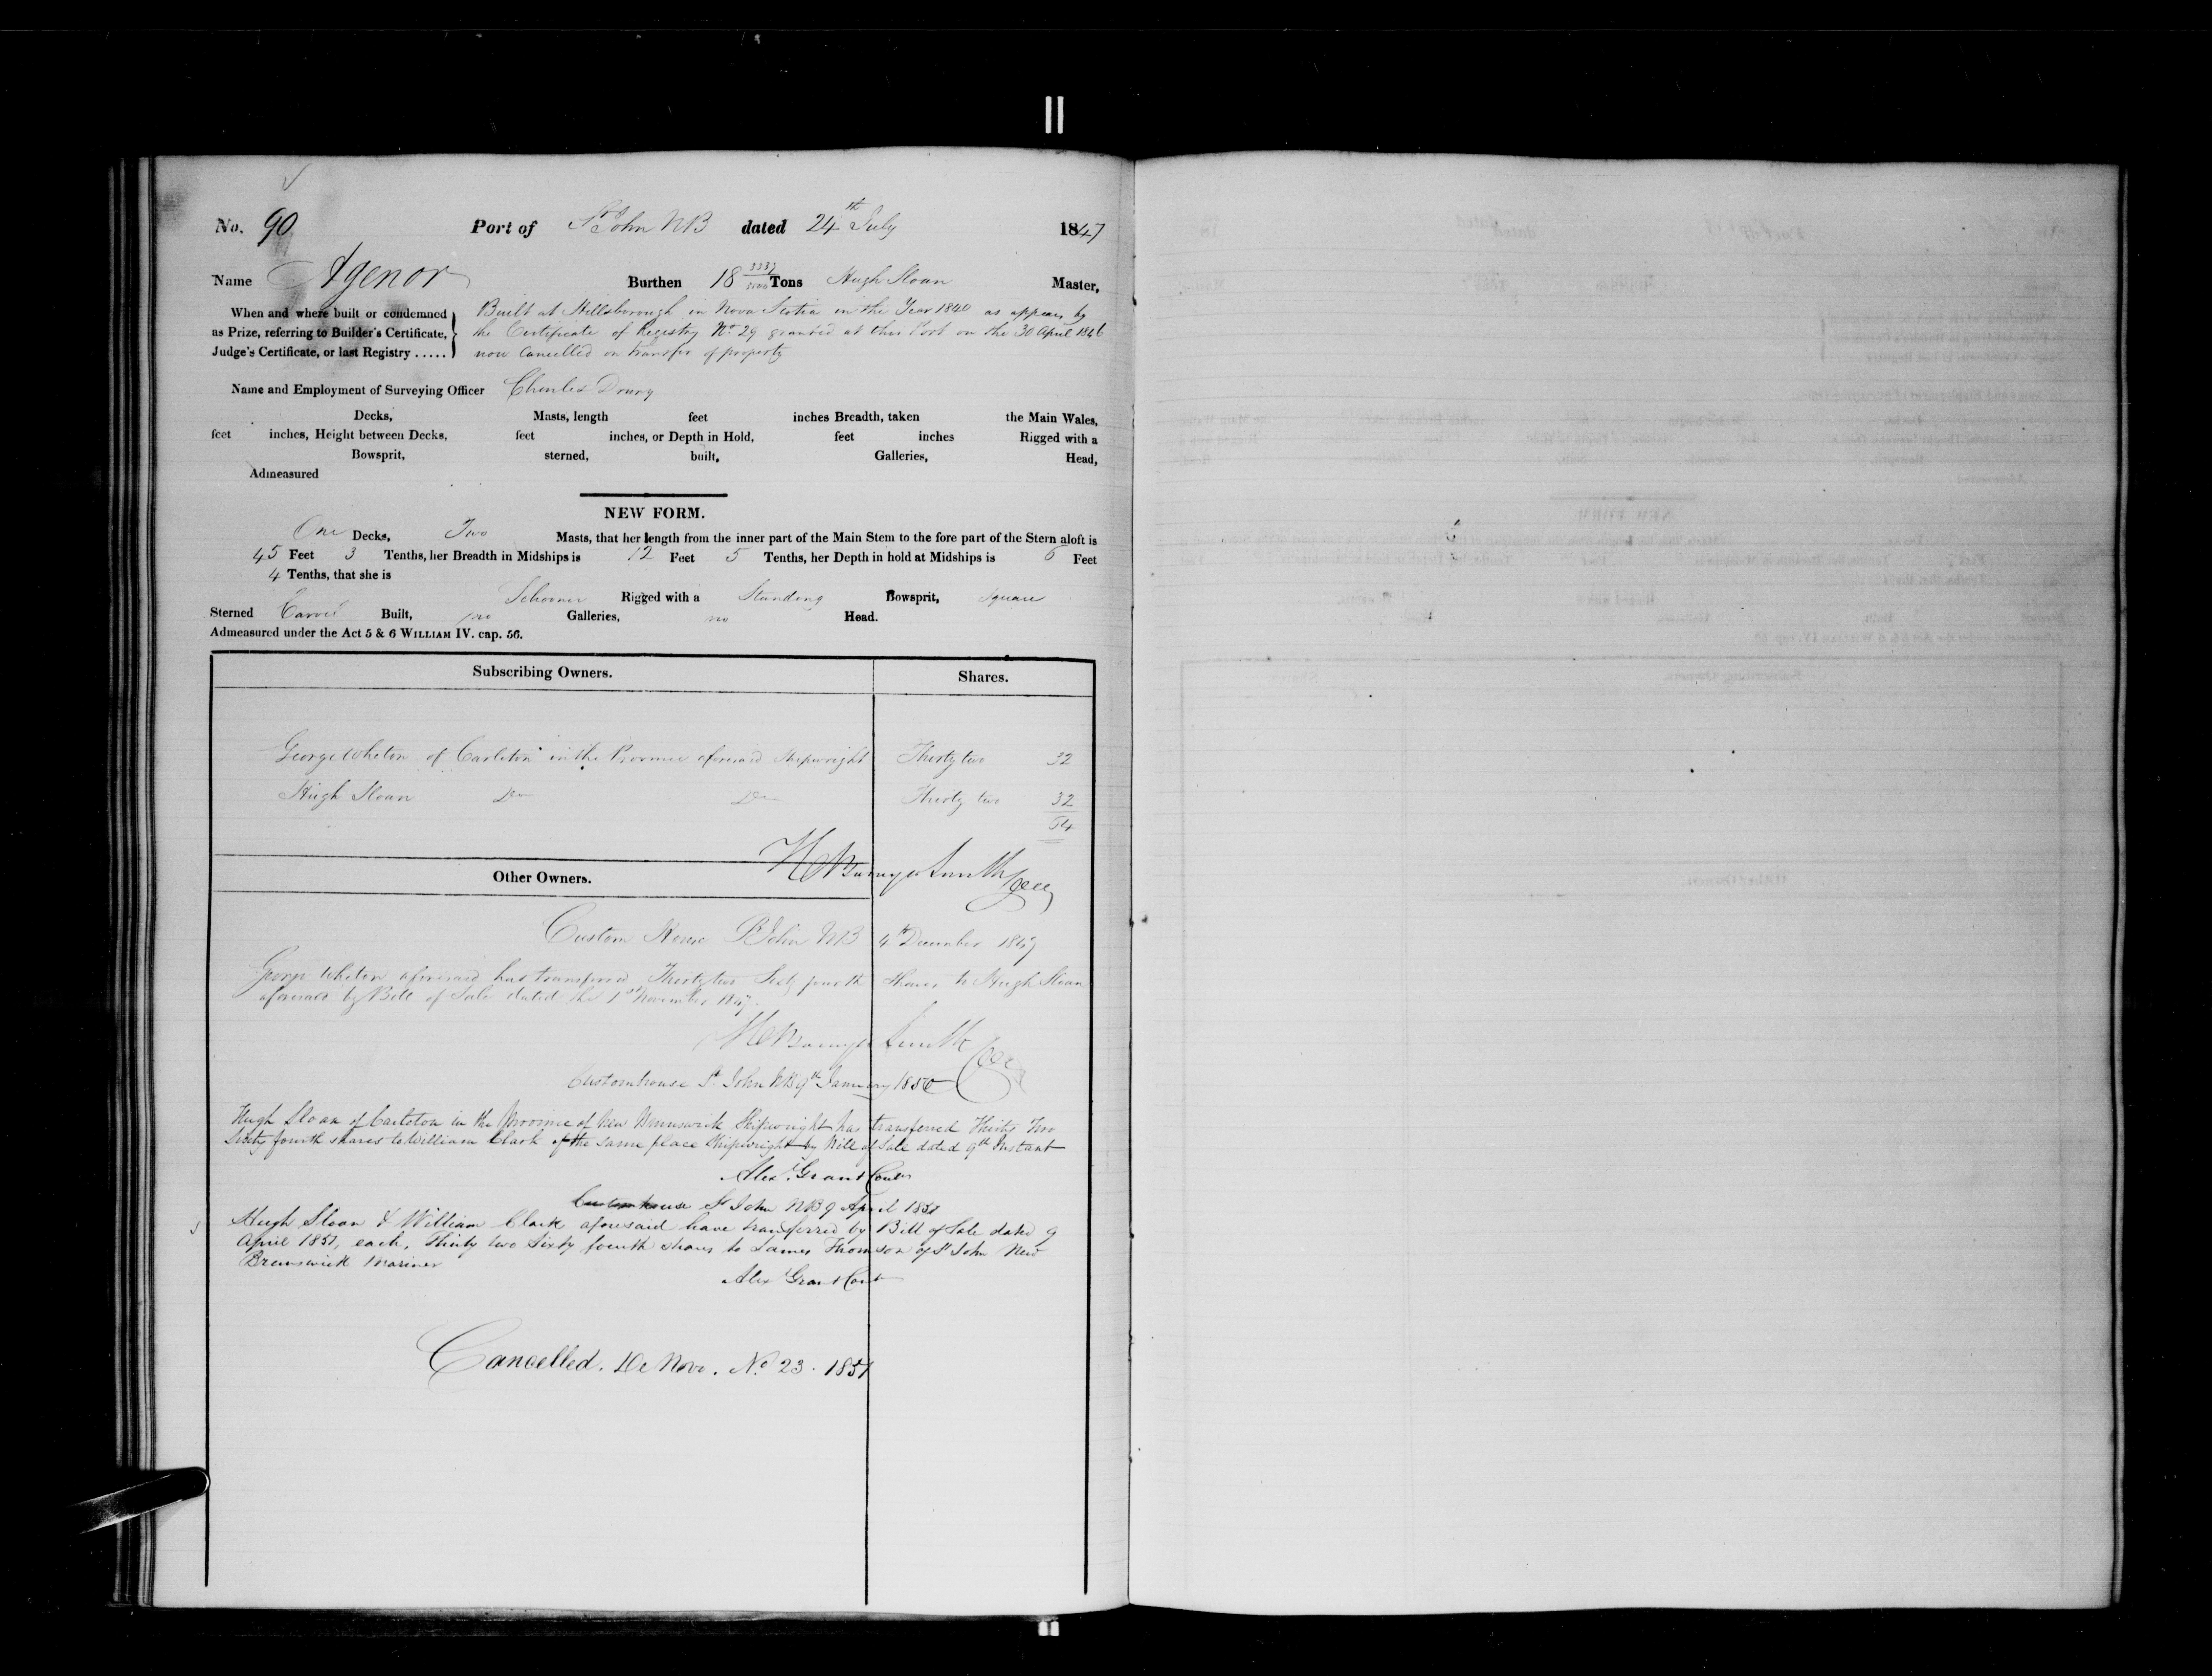 No. 90 Port of St John NB dated 24th July 1847
Name Agenor Burthen 18 3337/3500 Tons Hugh Sloan Master,
When and where built or condemned as Prize, referring to Builder's Certificate, Judge's Certificate, or last Registry .....
Built at Hillsborough in Nova Scotia in the Year 1840 as appears by
the Certificate of Registry No. 29 granted at this Port on the 30 April 1846
now Cancelled on transfer of property
Name and Employment of Surveying Officer Charles Drury
Decks, Masts, length feet inches Breadth, taken the Main Wales,
feet inches, Height between Decks, feet inches, or Depth in Hold, feet inches Rigged with a
Bowsprit, sterned, built, Galleries, Head,
Admeasured
NEW FORM.
One Decks, Two Masts, that her length from the inner part of the Main Stem to the fore part of the Stern aloft is
45 Feet 3 Tenths, her Breadth in Midships is 12 Feet 5 Tenths, her Depth in hold at Midships is 6 Feet
4 Tenths, that she is
Schooner Rigged with a Standing Bowsprit, Square
Sterned Carvel Built, no Galleries, no Head.
Admeasured under the Act 5 & 6 WILLIAM IV. cap. 56.
Subscribing Owners. Shares.
George Wheton of Carleton in the Province aforesaid Shipwright Thirty two 32
Hugh Sloan Do Do Thirty two 32
64
Smith
Other Owners.
Custom House St John NB 4th December 1847
George Wheton aforesaid has transferred Thirty two Sixty fourth Shares to Hugh Sloan
aforesaid by Bill of Sale dated the 1st November 1847.
Smith
Customhouse St. John NB 9th January 1850
Hugh Sloan of Carleton in the Province of New Brunswick Shipwright has transferred Thirty Two
Sixty fourth shares to William Clark of the same place Shipwright by Bill of Sale dated 9th Instant
Alexr Grant Contr
Customhouse St John NB 9 April 1851
Hugh Sloan & William Clark aforesaid have transferred by Bill of Sale dated 9
April 1851, each, Thirty two Sixty fourth shares to James Thomson of St John New
Brunswick Mariner
Alexr Grant Contr
Cancelled. De Novo. No. 23. 1851